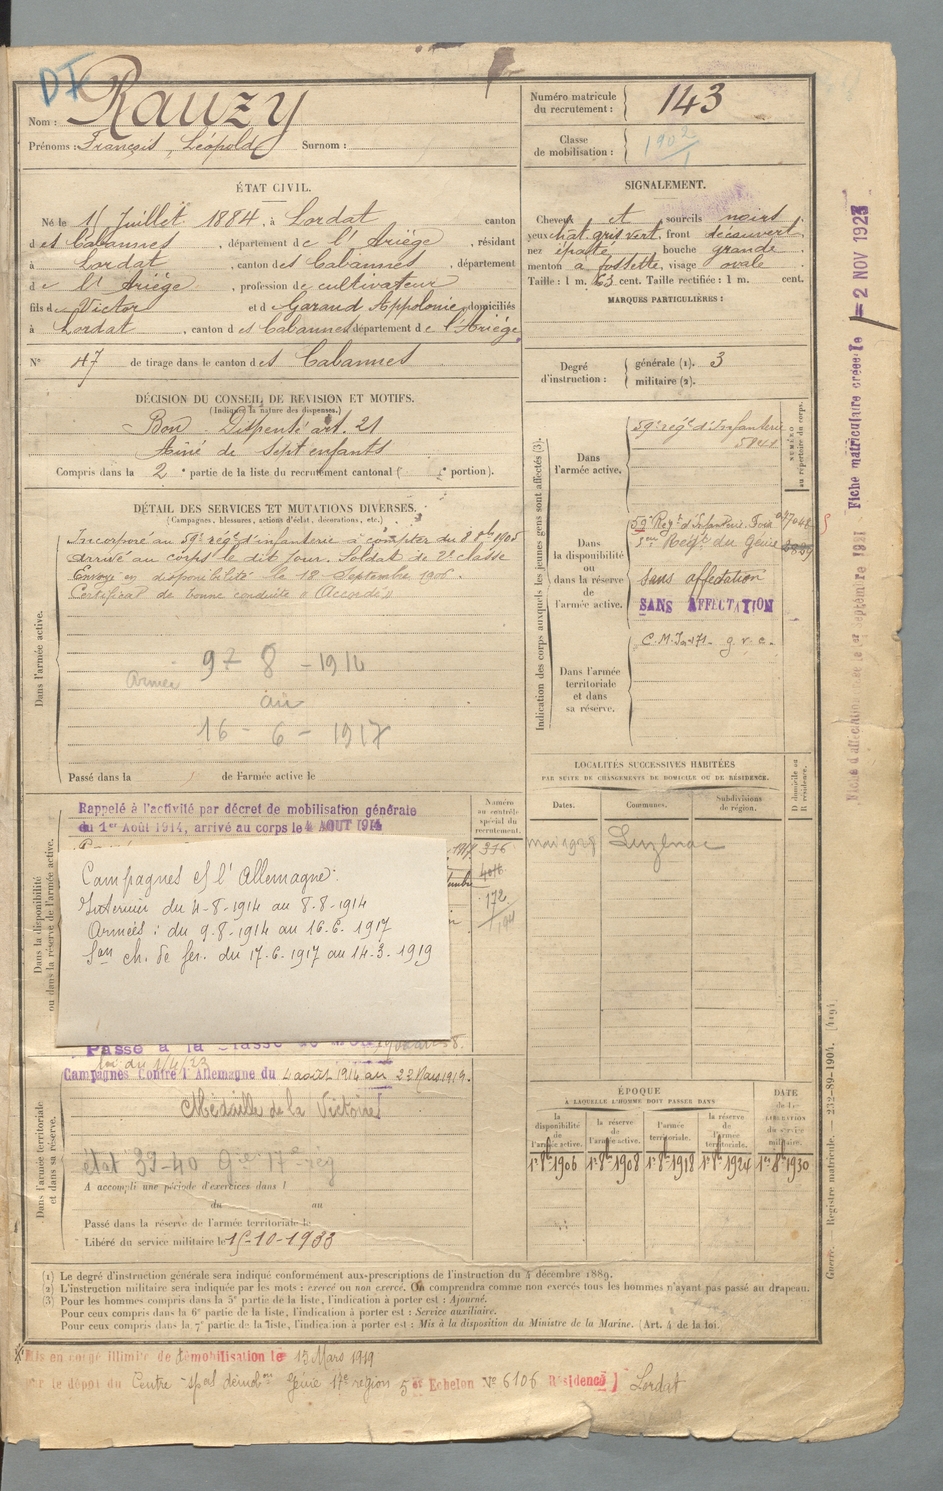 DI
Nom : Rauzy
Prénoms : François, Léopold Surnom :
Numéro matricule du recrutement : 143
Classe de mobilisation : 1902/1
ÉTAT CIVIL.
Né le Juillet 1884, à Lordat canton
des Cabannes, département de l'Ariège, résidant
à Lordat, canton des Cabannes, département
de l'Ariège, profession de cultivateur
fils de Victor et de Garaud Appolonie, domiciliés
à Lordat, canton des Cabannes département de l'Ariège
N° 47 de tirage dans le canton des Cabannes
DÉCISION DU CONSEIL DE REVISION ET MOTIFS.
(Indiquer la nature des dispenses.)
Bon. Dispensé art. 21
Aîné de sept enfants
Compris dans la 2e partie de la liste du recrutement cantonal ( e portion).
DÉTAIL DES SERVICES ET MUTATIONS DIVERSES.
(Campagnes, blessures, actions d'éclat, décorations, etc.)
Dans l'armée active.
Incorporé au 59e régt d'infanterie à compter du 8 8bre 1905
arrivé au corps le dit jour. Soldat de 2e classe
Envoyé en disponibilité le 18 Septembre 1906.
Certificat de bonne conduite « Accordé »
Armée 9 - 8 - 1914
au
16 - 6 - 1917
Passé dans la de l'armée active le
Dans la disponibilité ou dans la réserve de l'armée active.
Rappelé à l'activité par décret de mobilisation générale
du 1er Août 1914, arrivé au corps le 4 AOUT 1914
Campagnes c/ l'Allemagne :
Intérieur du 4-8-1914 au 8-8-1914
Armées : du 9-8-1914 au 16-6-1917
Son ch. de fer. du 17-6-1917 au 14-3-1919
Passé à la Classe de
loi du 1/4/23
Dans l'armée territoriale et dans sa réserve.
Campagnes Contre l'Allemagne du 4 août 1914 au 22 Mars 1919.
Médaille de la Victoire
état 39-40 Gie 17e reg
A accompli une période d'exercices dans l
du au
Passé dans la réserve de l'armée territoriale le
Libéré du service militaire le 15-10-1933
SIGNALEMENT.
Cheveux et sourcils noirs
yeux chât. gris vert, front découvert
nez épaté bouche grande
menton à fossette, visage ovale
Taille : 1 m. 63 cent. Taille rectifiée : 1 m. cent.
MARQUES PARTICULIÈRES :
Degré d'instruction :
générale (1). 3
militaire (2).
Indication des corps auxquels les jeunes gens sont affectés (3).
NUMÉRO au répertoire du corps.
Dans l'armée active.
59e régt d'Infanterie
5848
Dans la disponibilité ou dans la réserve de l'armée active.
59e Regt d'Infanterie. Foix
Regt du Génie
Sans affectation
SANS AFFECTATION
Dans l'armée territoriale et dans sa réserve.
g. v. c.
LOCALITÉS SUCCESSIVES HABITÉES
PAR SUITE DE CHANGEMENTS DE DOMICILE OU DE RÉSIDENCE.
Numéro au contrôle spécial du recrutement.
Dates.
Communes.
Subdivisions de région.
D domicile ou R résidence.
376
172
mai 1928 Luzenac
ÉPOQUE
A LAQUELLE L'HOMME DOIT PASSER DANS
la disponibilité de l'armée active.
la réserve de l'armée active.
l'armée territoriale.
la réserve de l'armée territoriale.
DATE de la LIBÉRATION du service militaire.
1r 8bre 1906 1r 8bre 1908 1r 8bre 1918 1r 8bre 1924 1er 8bre 1930
(1) Le degré d'instruction générale sera indiqué conformément aux prescriptions de l'instruction du 4 décembre 1889.
(2) L'instruction militaire sera indiquée par les mots : exercé ou non exercé. On comprendra comme non exercés tous les hommes n'ayant pas passé au drapeau.
(3) Pour les hommes compris dans la 5e partie de la liste, l'indication à porter est : Ajourné.
Pour ceux compris dans la 6e partie de la liste, l'indication à porter est : Service auxiliaire.
Pour ceux compris dans la 7e partie de la liste, l'indication à porter est : Mis à la disposition du Ministre de la Marine. (Art. 4 de la loi.
Mis en congé illimité de démobilisation le 15 Mars 1919
par le dépôt du Centre spécial démobon Génie 17e région 5e Echelon N° 6106 Résidence) Lordat
Fiche matriculaire créée le = 2 NOV 1923
Fiche d'affectation créée le 1er septembre 1921
Guerre. — Registre matricule. — 232-89-1904. (419).